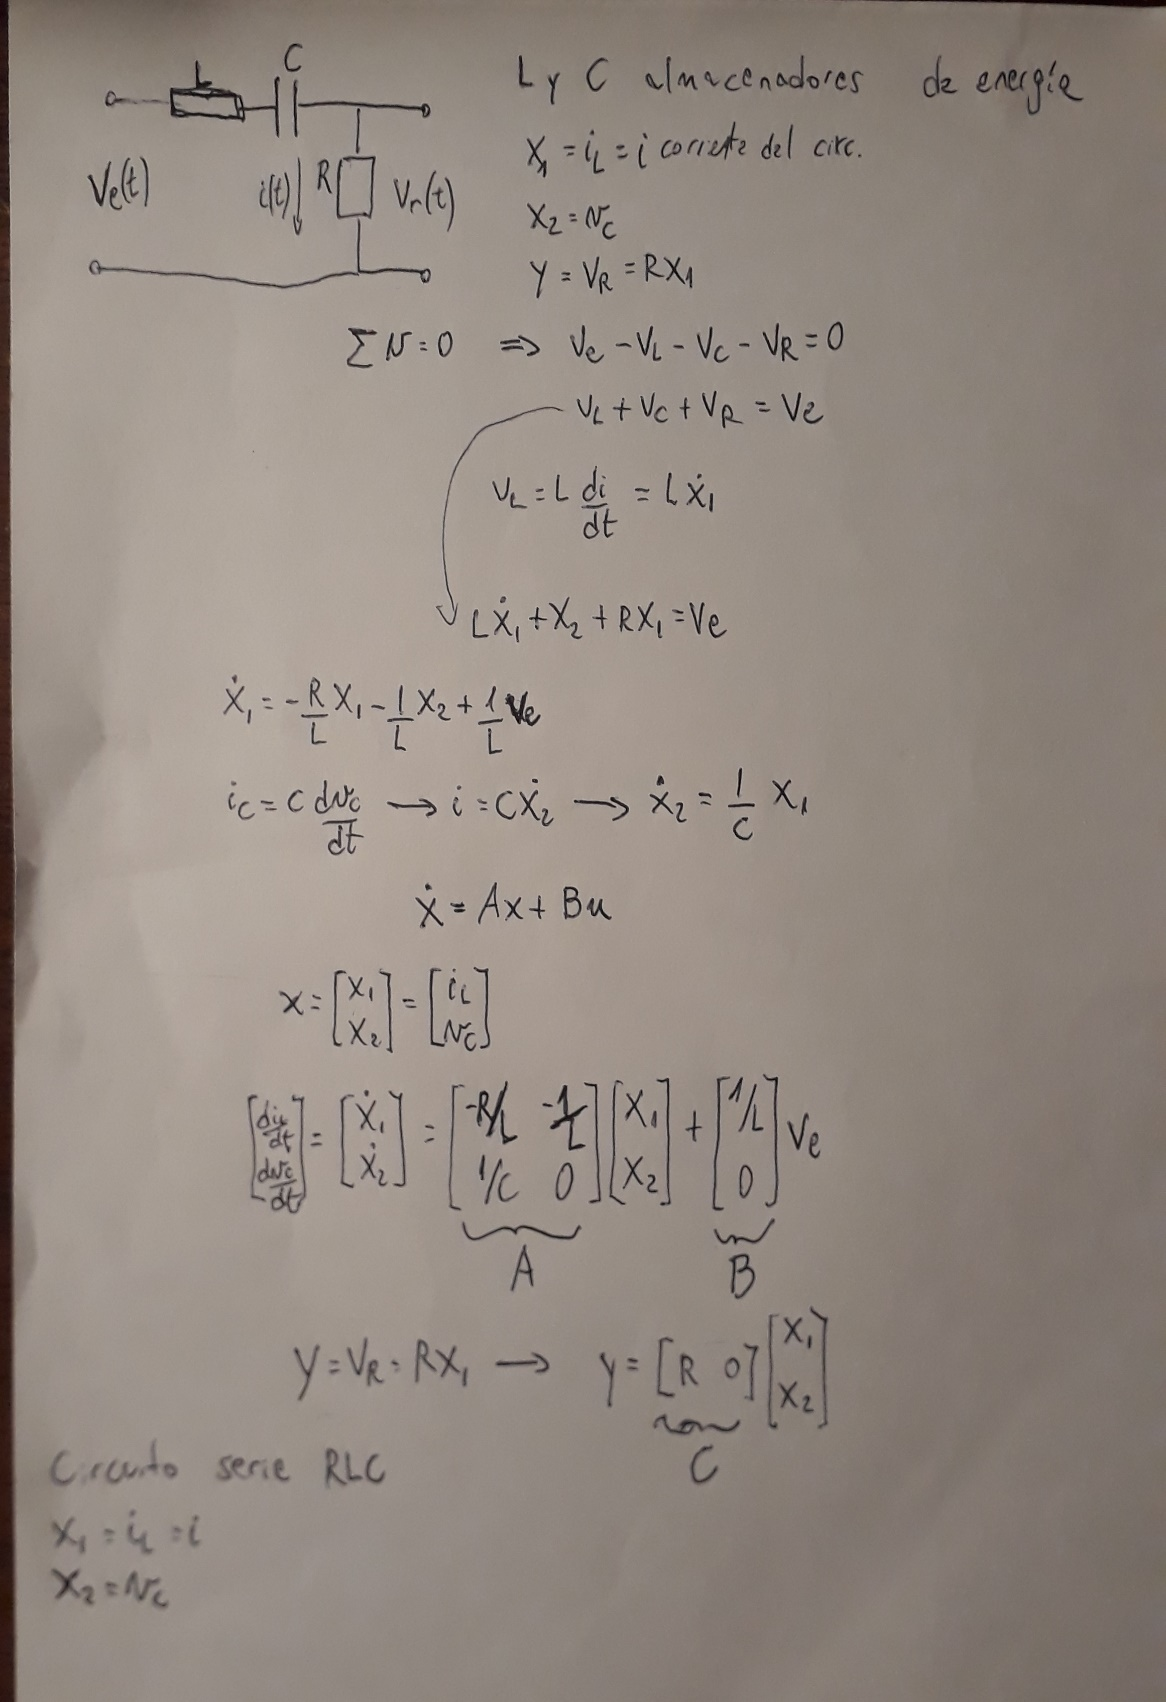 L
C
L y C almacenadores de energía
X₁ = i_L = i corriente del circ.
Ve(t) i(t) R Vr(t)
X₂ = v_C
Y = V_R = RX₁
Σ v = 0 ⇒ Ve - V_L - V_C - V_R = 0
V_L + V_C + V_R = Ve
V_L = L di/dt = L Ẋ₁
L Ẋ₁ + X₂ + RX₁ = Ve
Ẋ₁ = -R/L X₁ - 1/L X₂ + 1/L Ve
i_C = C dv_C/dt → i = C Ẋ₂ → Ẋ₂ = 1/C X₁
Ẋ = Ax + Bu
x = [X₁; X₂] = [i_L; v_C]
[di_L/dt; dv_C/dt] = [Ẋ₁; Ẋ₂] = [-R/L -1/L; 1/C 0] [X₁; X₂] + [1/L; 0] Ve
A B
Y = V_R = RX₁ → Y = [R 0] [X₁; X₂]
C
Circuito serie RLC
X₁ = i_L = i
X₂ = v_C